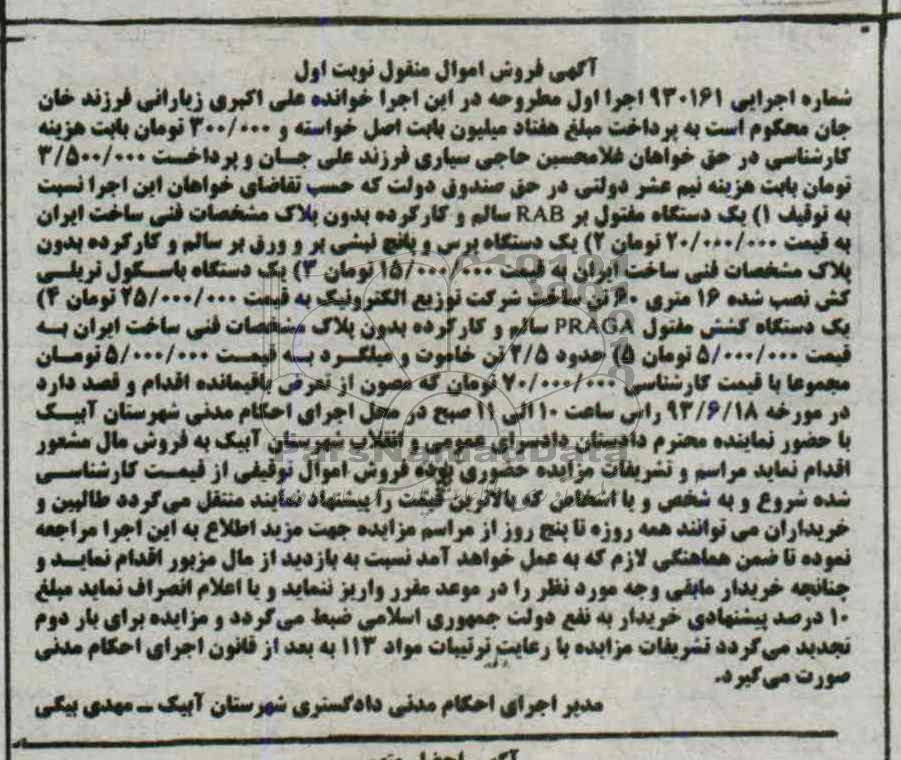 آگهی فروش اموال منقول نوبت اول
شماره اجرایی ۹۳۰۱۶۱ اجرا اول مطروحه در این اجرا خوانده علی اکبری زیارانی فرزند خان
جان محکوم است به پرداخت مبلغ هفتاد میلیون بابت اصل خواسته و ۳۰۰/۰۰۰ تومان بابت هزینه
کارشناسی در حق خواهان غلامحسین حاجی سیاری فرزند علی جان و پرداخت ۳/۵۰۰/۰۰۰
تومان بابت هزینه نیم عشر دولتی در حق صندوق دولت که حسب تقاضای خواهان این اجرا نسبت
به توقیف ۱) یک دستگاه مفتول بر RAB سالم و کارکرده بدون پلاک مشخصات فنی ساخت ایران
به قیمت ۲۰/۰۰۰/۰۰۰ تومان ۲) یک دستگاه پرس و پانچ نبشی بر و ورق بر سالم و کارکرده بدون
پلاک مشخصات فنی ساخت ایران به قیمت ۱۵/۰۰۰/۰۰۰ تومان ۳) یک دستگاه باسکول تریلی
کش نصب شده ۱۶ متری ۶۰ تن ساخت شرکت توزیع الکترونیک به قیمت ۲۵/۰۰۰/۰۰۰ تومان ۴)
یک دستگاه کشش مفتول PRAGA سالم و کارکرده بدون پلاک مشخصات فنی ساخت ایران به
قیمت ۵/۰۰۰/۰۰۰ تومان ۵) حدود ۲/۵ تن خاموت و میلگرد به قیمت ۵/۰۰۰/۰۰۰ تومان
مجموعا با قیمت کارشناسی ۷۰/۰۰۰/۰۰۰ تومان که مصون از تعرض باقیمانده اقدام و قصد دارد
در مورخه ۹۳/۶/۱۸ راس ساعت ۱۰ الی ۱۱ صبح در محل اجرای احکام مدنی شهرستان آبیک
با حضور نماینده محترم دادستان دادسرای عمومی و انقلاب شهرستان آبیک به فروش مال مشعور
اقدام نماید مراسم و تشریفات مزایده حضوری بوده فروش اموال توقیفی از قیمت کارشناسی
شده شروع و به شخص و یا اشخاص که بالاترین قیمت را پیشنهاد نمایند منتقل می گردد طالبین و
خریداران می توانند همه روزه تا پنج روز از مراسم مزایده جهت مزید اطلاع به این اجرا مراجعه
نموده تا ضمن هماهنگی لازم که به عمل خواهد آمد نسبت به بازدید از مال مزبور اقدام نمایند و
چنانچه خریدار مابقی وجه مورد نظر را در موعد مقرر واریز ننماید و یا اعلام انصراف نماید مبلغ
۱۰ درصد پیشنهادی خریدار به نفع دولت جمهوری اسلامی ضبط می گردد و مزایده برای بار دوم
تجدید می گردد تشریفات مزایده با رعایت ترتیبات مواد ۱۱۳ به بعد از قانون اجرای احکام مدنی
صورت می گیرد.
مدیر اجرای احکام مدنی دادگستری شهرستان آبیک ــ مهدی بیکی
ParsNamadData